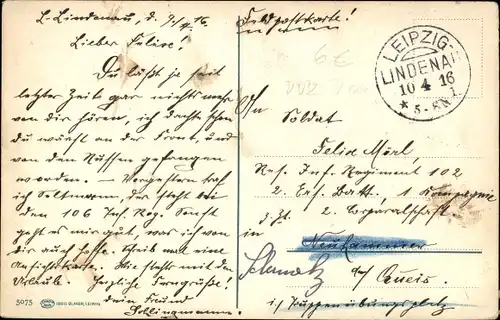 L. Lindenau, d. 9./4. 16
Lieber Felix!
Du läßt ja seit
letzter Zeit gar nichts mehr
von dir hören, ich dachte schon
du wärst an der Front, und
von den Russen gefangen
worden. – Vorgestern traf
ich Seltmann, der steht bei
den 106 Inf. Reg. Sonst
geht es mir gut, was ich von
dir auch hoffe. Schreib mal eine
Ansichtskarte. Wie stehts mit dem
Urlaub. Herzliche Ferngrüße!
dein Freund
5075
Feldpostkarte!
LEIPZIG-
LINDENAU
10 4 16
* 5-6N 1
6€
An
Soldat
Felix Mörl,
Res. Inf. Regiment 102
2. Ers. Batt. 1 Kompagnie
2. Corporalschaft.
d. Zt.
in Neuhammer
am Queis
i./ Truppenübungsplatz